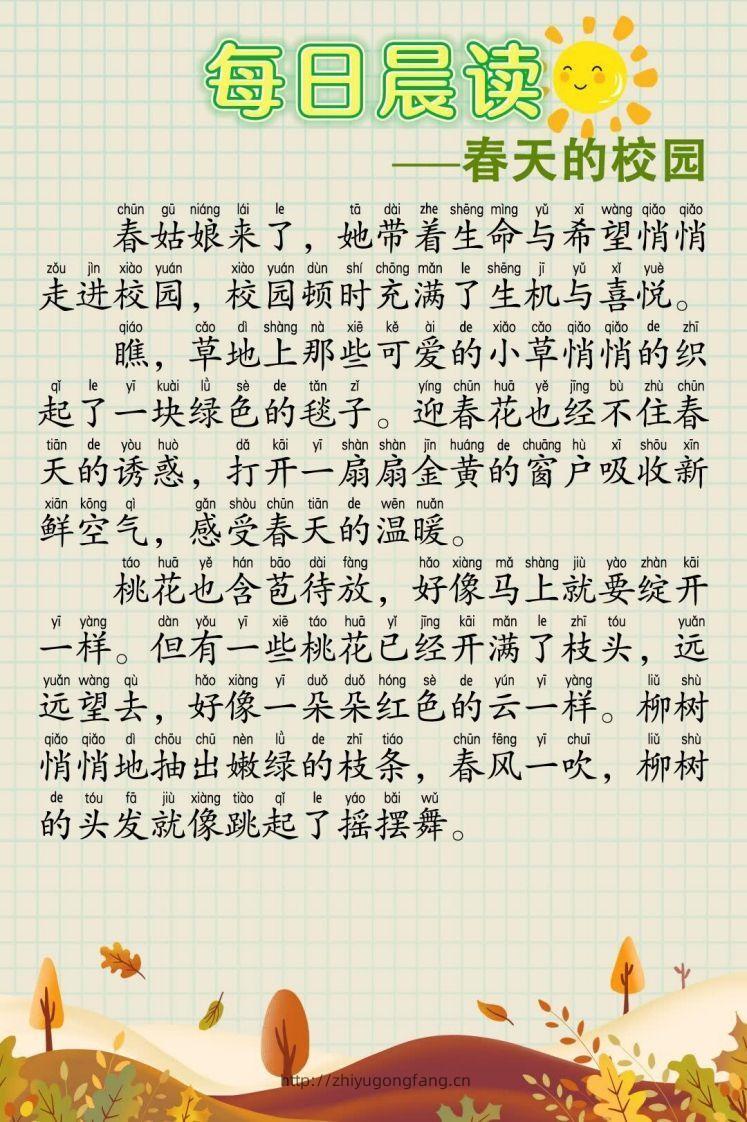 每日晨读
——春天的校园
chūn gū niáng lái le tā dài zhe shēng mìng yǔ xī wàng qiǎo qiǎo
春姑娘来了，她带着生命与希望悄悄
zǒu jìn xiào yuán xiào yuán dùn shí chōng mǎn le shēng jī yǔ xǐ yuè
走进校园，校园顿时充满了生机与喜悦。
qiáo cǎo dì shàng nà xiē kě ài de xiǎo cǎo qiǎo qiǎo de zhī
瞧，草地上那些可爱的小草悄悄的织
qǐ le yī kuài lǜ sè de tǎn zǐ yíng chūn huā yě jīng bù zhù chūn
起了一块绿色的毯子。迎春花也经不住春
tiān de yòu huò dǎ kāi yī shàn shàn jīn huáng de chuāng hù xī shōu xīn
天的诱惑，打开一扇扇金黄的窗户吸收新
xiān kōng qì gǎn shòu chūn tiān de wēn nuǎn
鲜空气，感受春天的温暖。
táo huā yě hán bāo dài fàng hǎo xiàng mǎ shàng jiù yào zhàn kāi
桃花也含苞待放，好像马上就要绽开
yī yàng dàn yǒu yī xiē táo huā yǐ jīng kāi mǎn le zhī tóu yuǎn
一样。但有一些桃花已经开满了枝头，远
yuǎn wàng qù hǎo xiàng yī duǒ duǒ hóng sè de yún yī yàng liǔ shù
远望去，好像一朵朵红色的云一样。柳树
qiǎo qiǎo dì chōu chū nèn lǜ de zhī tiáo chūn fēng yī chuī liǔ shù
悄悄地抽出嫩绿的枝条，春风一吹，柳树
de tóu fā jiù xiàng tiào qǐ le yáo bǎi wǔ
的头发就像跳起了摇摆舞。
http://zhiyugongfang.cn